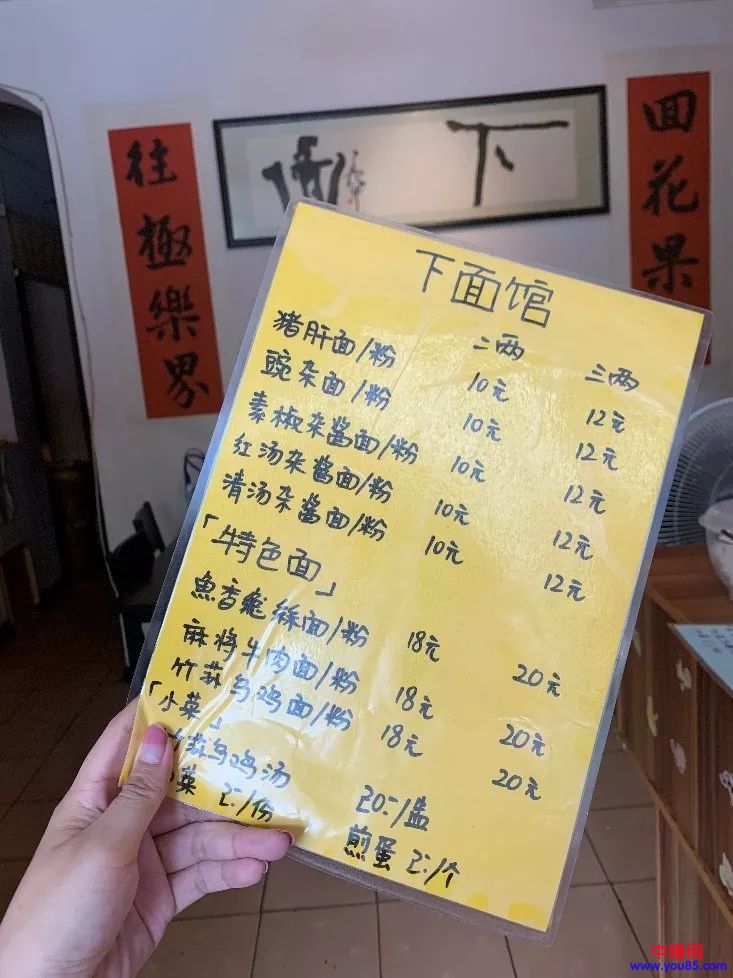 往極樂界
下
回花果
下面馆
二两 三两
猪肝面/粉 10元 12元
豌杂面/粉 10元 12元
素椒杂酱面/粉 10元 12元
红汤杂酱面/粉 10元 12元
清汤杂酱面/粉 10元 12元
「特色面」
魚香 面/粉 18元 20元
麻将牛肉面/粉 18元 20元
竹荪乌鸡面/粉 18元 20元
「小菜」
荪乌鸡汤 20:/盅
菜 2:/份 煎蛋 2:/个
中赚网
www.you85.com